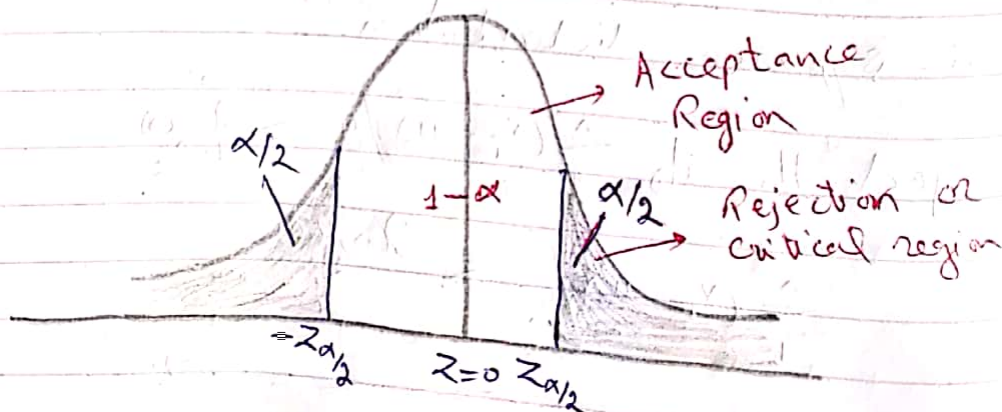 Acceptance
Region
α/2
1-α
α/2
Rejection or
critical region
-Zα/2
Z=0
Zα/2